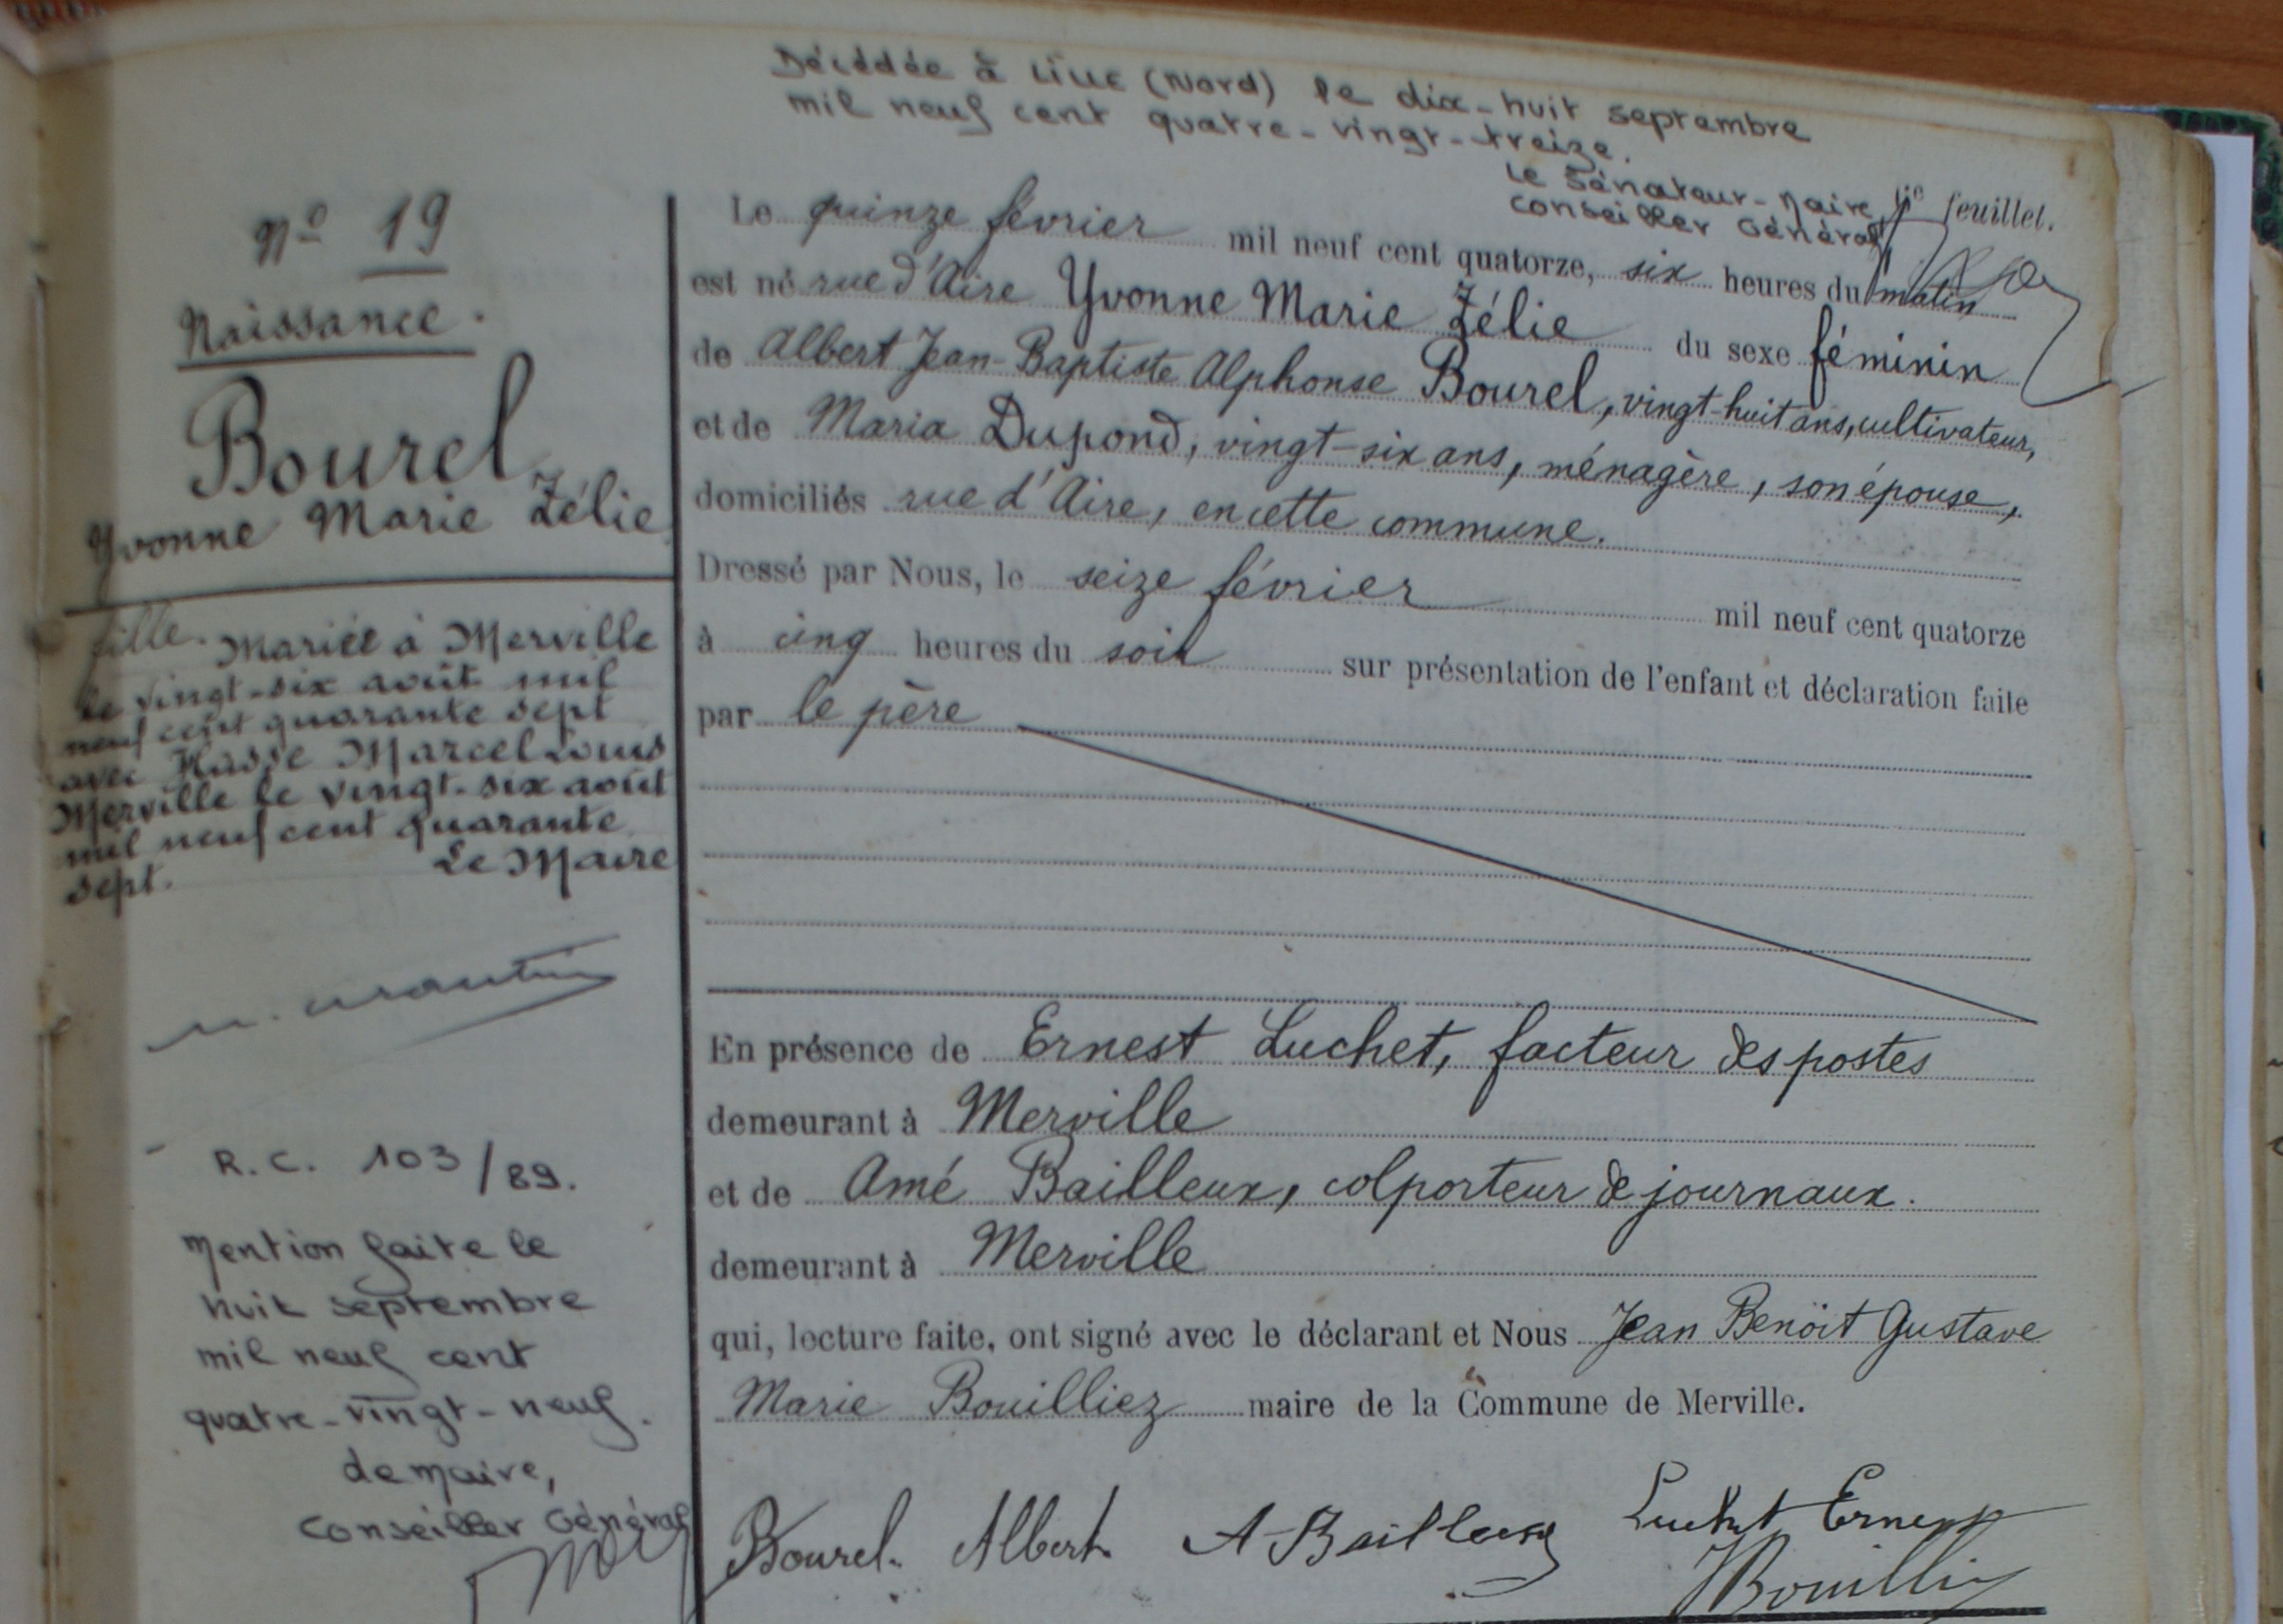 Décédée à Lille (Nord) le dix-huit septembre
mil neuf cent quatre-vingt-treize.
Le Sénateur-Maire,
Conseiller Général
feuillet.
N° 19
Naissance.
Bourel
Yvonne Marie Zélie
fille. Mariée à Merville
le vingt-six août mil
neuf cent quarante sept
avec Hasse Marcel Louis
Merville le vingt-six août
mil neuf cent quarante
sept. Le Maire
R.C. 103/89.
Mention faite le
huit septembre
mil neuf cent
quatre-vingt-neuf.
de maire,
Conseiller Général
Le quinze février mil neuf cent quatorze, six heures du matin
est né rue d'Aire Yvonne Marie Zélie du sexe féminin
de Albert Jean-Baptiste Alphonse Bourel, vingt-huit ans, cultivateur,
et de Maria Dupond, vingt-six ans, ménagère, son épouse,
domiciliés rue d'Aire, en cette commune.
Dressé par Nous, le seize février mil neuf cent quatorze
à cinq heures du soir sur présentation de l'enfant et déclaration faite
par le père
En présence de Ernest Luchet, facteur des postes
demeurant à Merville
et de Amé Bailleux, colporteur de journaux.
demeurant à Merville
qui, lecture faite, ont signé avec le déclarant et Nous Jean Benoît Gustave
Marie Bouilliez maire de la Commune de Merville.
Bourel Albert A-Bailleux Luchet Ernest